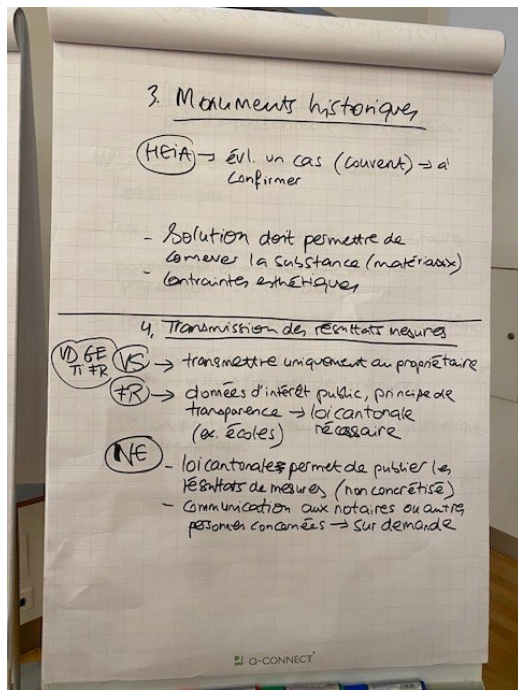 3. Monuments historiques
HEiA → évl. un cas (couvent) → à
confirmer
- Solution doit permettre de
conserver la substance (matériaux)
- Contraintes esthétiques
4. Transmission des résultats mesures
VD GE
TI FR
VS → transmettre uniquement au propriétaire
FR → données d'intérêt public, principe de
transparence → loi cantonale
(ex. écoles) nécessaire
NE
- loi cantonale permet de publier les
résultats de mesures (non concrétisé)
- Communication aux notaires ou autres
personnes concernées → sur demande
Q-CONNECT